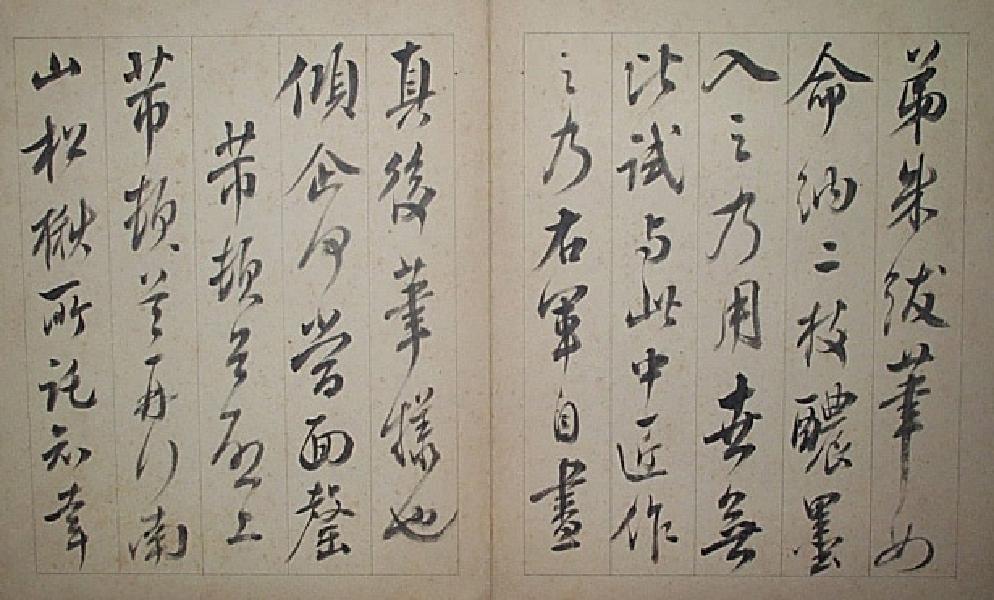 弟朱紱筆如
命納二枝醲墨
入之乃用去無
此試与此中匠作
之乃右軍自畫
真後筆樣也
傾企何當面罄
芾頓首啟上
芾頓首再行南
山松楸所託知幸